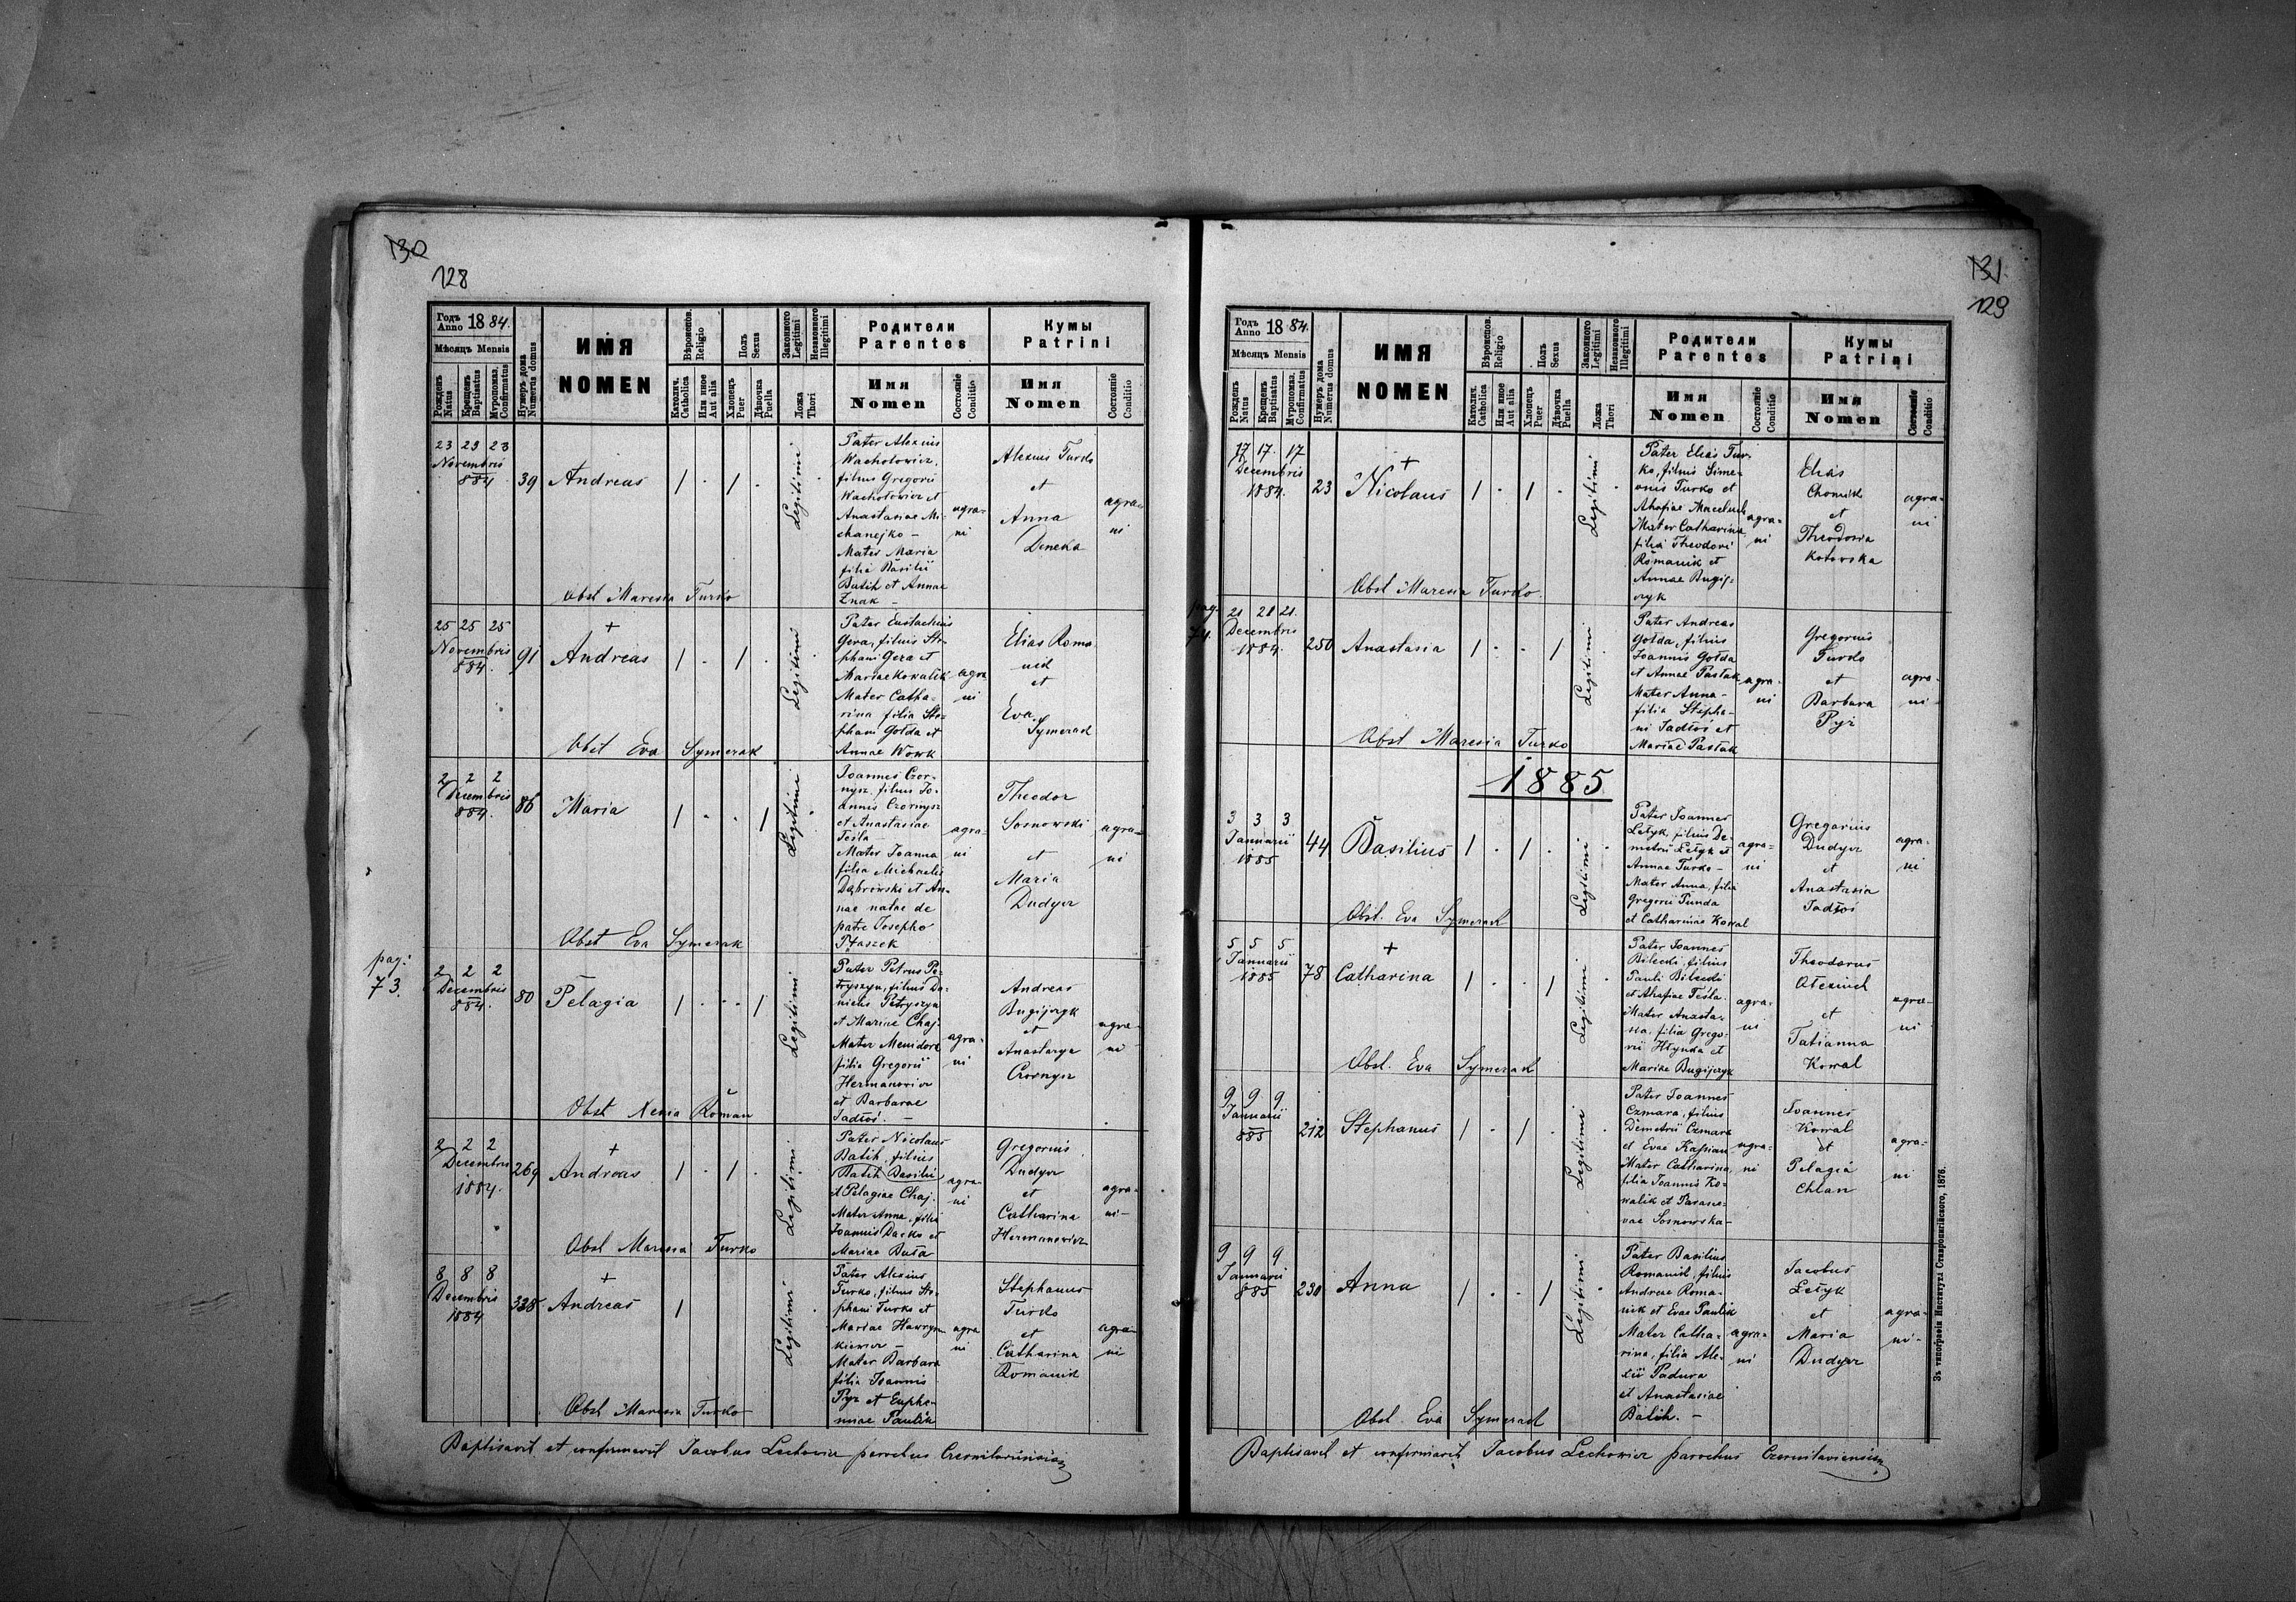 130
128
Годъ Anno 1884.
Мѣсяцъ Mensis
Рожденъ Natus
Крещенъ Baptisatus
Мѵропомаз. Confirmatus
Нумеръ дома Numerus domus
ИМЯ
NOMEN
Вѣроиспов. Religio
Католич. Catholica
Или иное Aut alia
Полъ Sexus
Хлопецъ Puer
Дѣвочка Puella
Законного Legitimi
Незаконного Illegitimi
Ложа Thori
Родители
Parentes
Имя
Nomen
Состояніе Conditio
Кумы
Patrini
Имя
Nomen
Состояніе Conditio
23 23 23
Novembris
884
39
Andreas
1 . 1 .
Legitimi
Pater Alexius
Wachotowicz,
filius Gregorii
Wachotowicz et
Anastasiae Mi-
chanejko –
Mater Maria
filia Basilii
Batih et Annae
Znak –
agra-
ni
Alexius Turko
et
Anna
Deneka
agra-
ni
Obst Maresia Turko
25 25 25
Novembris
884.
91
+
Andreas
1 . 1 .
Legitimi
Pater Eustachius
Gera, filius Ste-
phani Gera et
Mariae Kowalik
Mater Catha-
rina filia Ste-
phani Gołda et
Annae Wowk
agra
ni
Elias Roma
nich
et
Eva
Symerak
Obst Eva Symerak
2 2 2
Decembris
884.
86
Maria
1 . . 1
Legitimi
Joannes Czor-
nysz filius Jo-
annis Czornysz
et Anastasiae
Tesla
Mater Joanna
filia Michaelis
Dąbrowski et An-
nae natae de
patre Josepho
Ptaszek
agra-
ni
Theodor
Sosnowski
et
Maria
Dudycz
agra-
ni
Obst Eva Symerak
pag:
73.
2 2 2
Decembris
884.
80
Pelagia
1 . . 1
Legitimi
Pater Petrus Pe-
tryszyn, filius Da-
nielis Petryszyn
et Mariae Chaj.
Mater Menidora
filia Gregorii
Hermanowicz
et Barbarae
Jadłoś. –
agra-
ni
Andreas
Bugijczyk
et
Anastazya
Czornysz
agra-
ni
Obst Xenia Roman
2 2 2
Decembris
1884.
269
+
Andreas
1 . 1 .
Legitimi
Pater Nicolaus
Batih, filius
Batih Basilii
et Pelagiae Chaj.
Mater Anna, filia
Joannis Dacko et
Mariae Buta
agra-
ni
Gregorius
Dudycz
et
Catharina
Hermanowicz
agra-
ni –
Obst Maresia Turko
8 8 8
Decembris
1884
328
+
Andreas
1
Legitimi
Pater Alexius
Turko, filius Ste-
phani Turko et
Mariae Hawryn-
kiewicz –
Mater Barbara
filia Joannis
Pyz et Euphe-
miae Paulik
agra
ni
Stephanus
Turko
et
Catharina
Romanich
agra-
ni
Obst Maresia Turko
Baptisavit et confirmavit Jacobus Lechowicz parochus Czernilaviensis
131
129
Годъ Anno 1884.
Мѣсяцъ Mensis
Рожденъ Natus
Крещенъ Baptisatus
Мѵропомаз. Confirmatus
Нумеръ дома Numerus domus
ИМЯ
NOMEN
Вѣроиспов. Religio
Католич. Catholica
Или иное Aut alia
Полъ Sexus
Хлопецъ Puer
Дѣвочка Puella
Законного Legitimi
Незаконного Illegitimi
Ложа Thori
Родители
Parentes
Имя
Nomen
Состояніе Conditio
Кумы
Patrini
Имя
Nomen
Состояніе Conditio
17 17. 17
Decembris
1884.
23
+
Nicolaus
1 . 1 .
Legitimi
Pater Elias Tur-
ko, filius Sime-
onis Turko et
Ahafiae Maceluch
Mater Catharina
filia Theodori
Romanik et
Annae Bugij-
czyk
agra-
ni
Elias
Chomik
et
Theodosia
Kotowska
agra-
ni
Obst Maresia Turko.
pag.
74.
21 21 21.
Decembris
1884.
250
Anastasia
1 . . 1
Legitimi
Pater Andreas
Gołda, filius
Joannis Gołda
et Annae Pastuk
Mater Anna –
filia Stepha-
ni Jadłoś et
Mariae Pastuk
agra-
ni
Gregorius
Turko
et
Barbara
Pyz
agra-
ni –
Obst Maresia Turko
1885
3 3 3
Januarii
1885
44
Basilius
1 . 1 .
Legitimi
Pater Joannes
Letyk, filius De-
metrii Letyk et
Annae Turko –
Mater Anna, filia
Gregorii Punda
et Catharinae Kowal
agra-
ni
Gregorius
Dudycz
et
Anastasia
Jadłoś
agra-
ni
Obst. Eva Symerak
5 5 5
Januarii
1885
78
+
Catharina
1 . . 1
Legitimi
Pater Joannes
Bilecki, filius
Pauli Bilecki
et Ahafiae Tesla.
Mater Anasta-
sia, filia Grego-
rii Hlynka et
Mariae Bugijczyk
agra-
ni
Theodorus
Ołexiuch
et
Tatianna
Kowal
agra-
ni
Obst. Eva Symerak
9 9 9
Januarii
885
212
Stephanus
1 . 1 .
Legitimi
Pater Joannes
Czmara, filius
Demetrii Czmara
et Evae Kassian
Mater Catharina,
filia Joannis Ko-
walik et Parasce-
vae Sosnowska –
agra-
ni
Joannes
Kowal
et
Pelagia
Chlan
agra-
ni
9 9 9
Januarii
885
230
Anna
1 . . 1
Legitimi
Pater Basilius
Romanik, filius
Andreae Roma-
nik et Evae Paulik
Mater Catha-
rina, filia Ale-
xii Padura
et Anastasiae
Batih. –
agra-
ni
Jacobus
Letyk
et
Maria
Dudycz
agra-
ni –
Obst Eva Symerak
Baptisavit et confirmavit Jacobus Lechowicz parochus Czernilaviensis
Зъ типоґрафіи Института Ставропигійского, 1876.